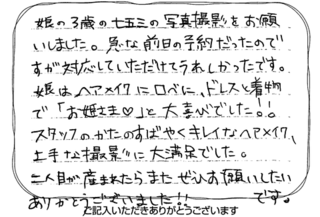 娘の3歳の七五三の写真撮影をお願
いしました。急な前日の予約だったので
すが対応していただけてうれしかったです。
娘はヘアメイクに口ベに、ドレスと着物
で「お姫さま♡」と大喜びでした!!
スタッフのかたのすばやくキレイなヘアメイク、
上手な撮影に大満足でした。
二人目が産まれたらまたぜひお願いしたい
です。
ありがとうございました!!
ご記入いただきありがとうございます